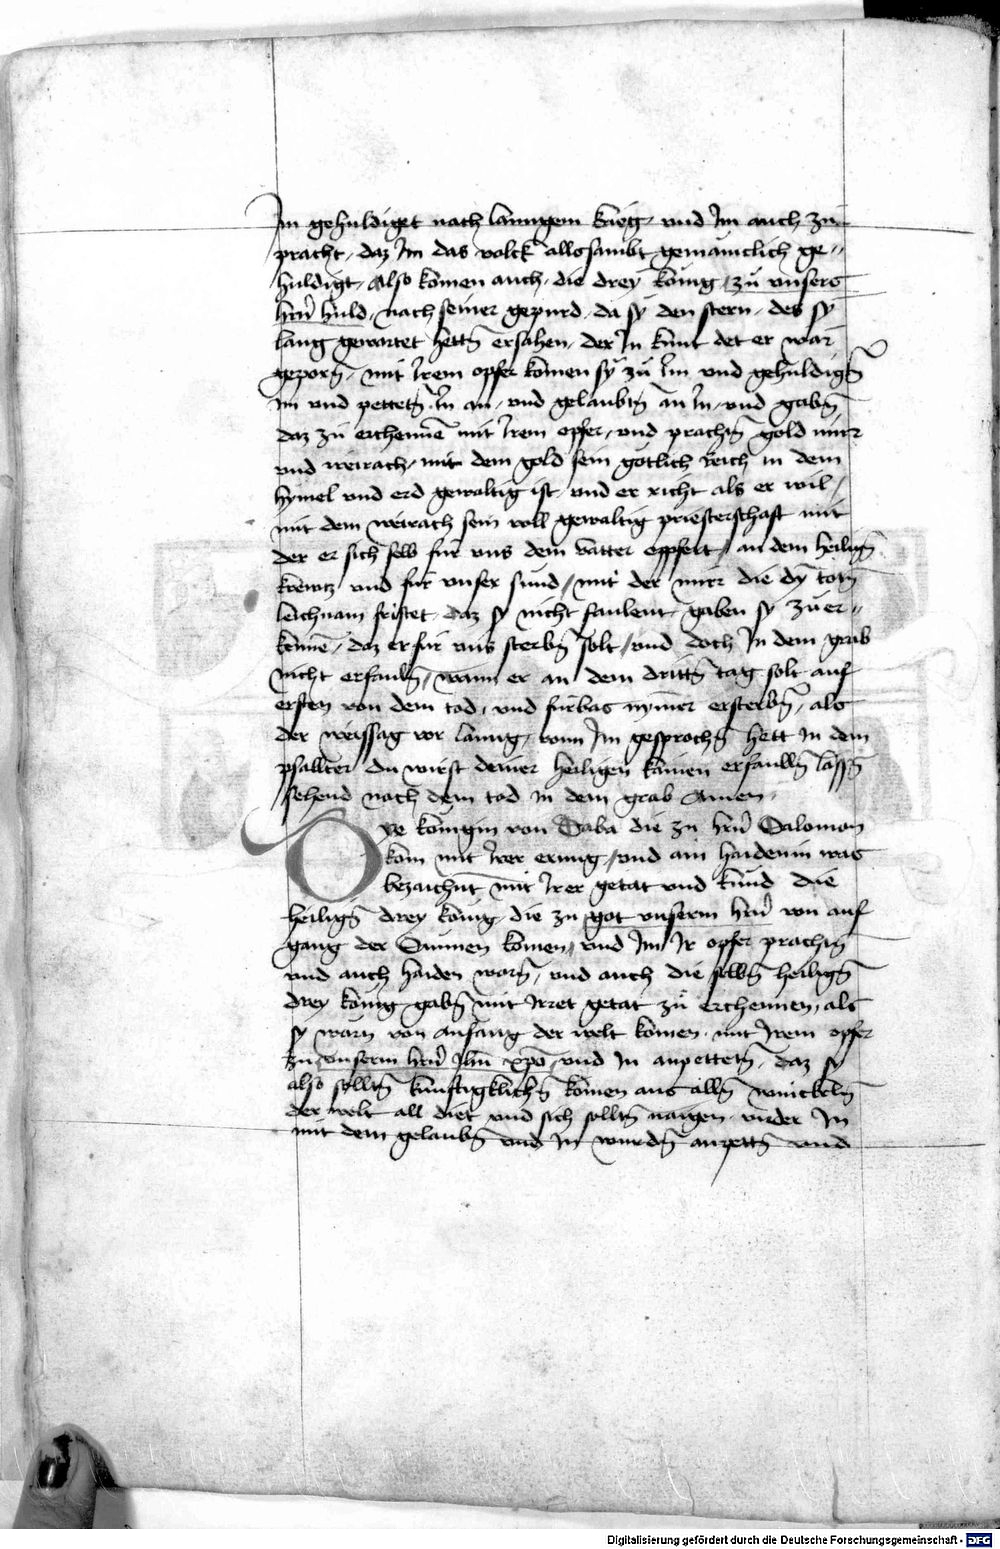 Im gehuldiget nach lanngem krieg / vnd Im auch zu
pracht / daz Im das volck allssambt gemainclich ge〃
huldigt / Also komen auch / die drey künig / zu vnsers
hrn̄ huld / nach seiner gepurd / da sÿ den stern / des sÿ
lang gewartet hettn̄ ersahen / der In kunt det er war
geporn̄ / mit Irem opfer komen sÿ zu Im vnd gehuldign̄
Im vnd pettetn̄ In an / vnd gelaubtn̄ an In / vnd gabn̄
daz zu erchennē mit Irem opfer / vnd prachtn̄ gold mirr
vnd weirach / mit dem gold sein götlich Reich in dem
hymel vnd erd gewaltig ist / vnd er richt als er wil /
mit dem weirach sein voll gewaltig priesterschaft mit
der er sich selb für vns dem vatter opfert / an dem heilign̄
krewtz vnd für vnser sund / mit der mirr die dÿ totn̄
leichnam fristet / daz sy nicht faulent / gaben sy zu er〃
kennē / daz er für vns sterbn̄ solt / vnd doch In dem grab
nicht erfauln̄ / wann er an dem drittn̄ tag solt auf
ersten von dem tod / vnd fürbas nymer ersterbn̄ / als
der weissag vor lanng / vonn Im gesprochn̄ hett In dem
psallter du wirst deiner heiligen kainen erfaulln̄ lassn̄
sehend nach dem tod in dem grab Amen /
Dye konigin von Saba die zu hrn̄ Salomon
kom mit Irer erung / vnd ain haidenin was
bezaichnt mit Irer getat vnd kund die
heilign̄ drey künig / die zu got vnserm hrn̄ von auf
gang der Sunnen komen / vnd Im Ir opfer prachtn̄
vnd auch haiden warn̄ / vnd auch die selbn̄ heilign̄
drey künig gabn̄ mit Irret getat zu erchennen / als
sy warn von anfang der welt komen / mit Irem opfer
zu vnserm hrn̄ Ihū xp̄o / vnd In anpettetn̄ / daz sy
also solltn̄ kunftigklichn̄ komen aus alln̄ winckeln̄
der welt all diet vnd sich solltn̄ naigen / vnder In
mit dem gelaubn̄ vnd In wurdn̄ anpettn̄ vnd
Digitalisierung gefördert durch die Deutsche Forschungsgemeinschaft - DFG